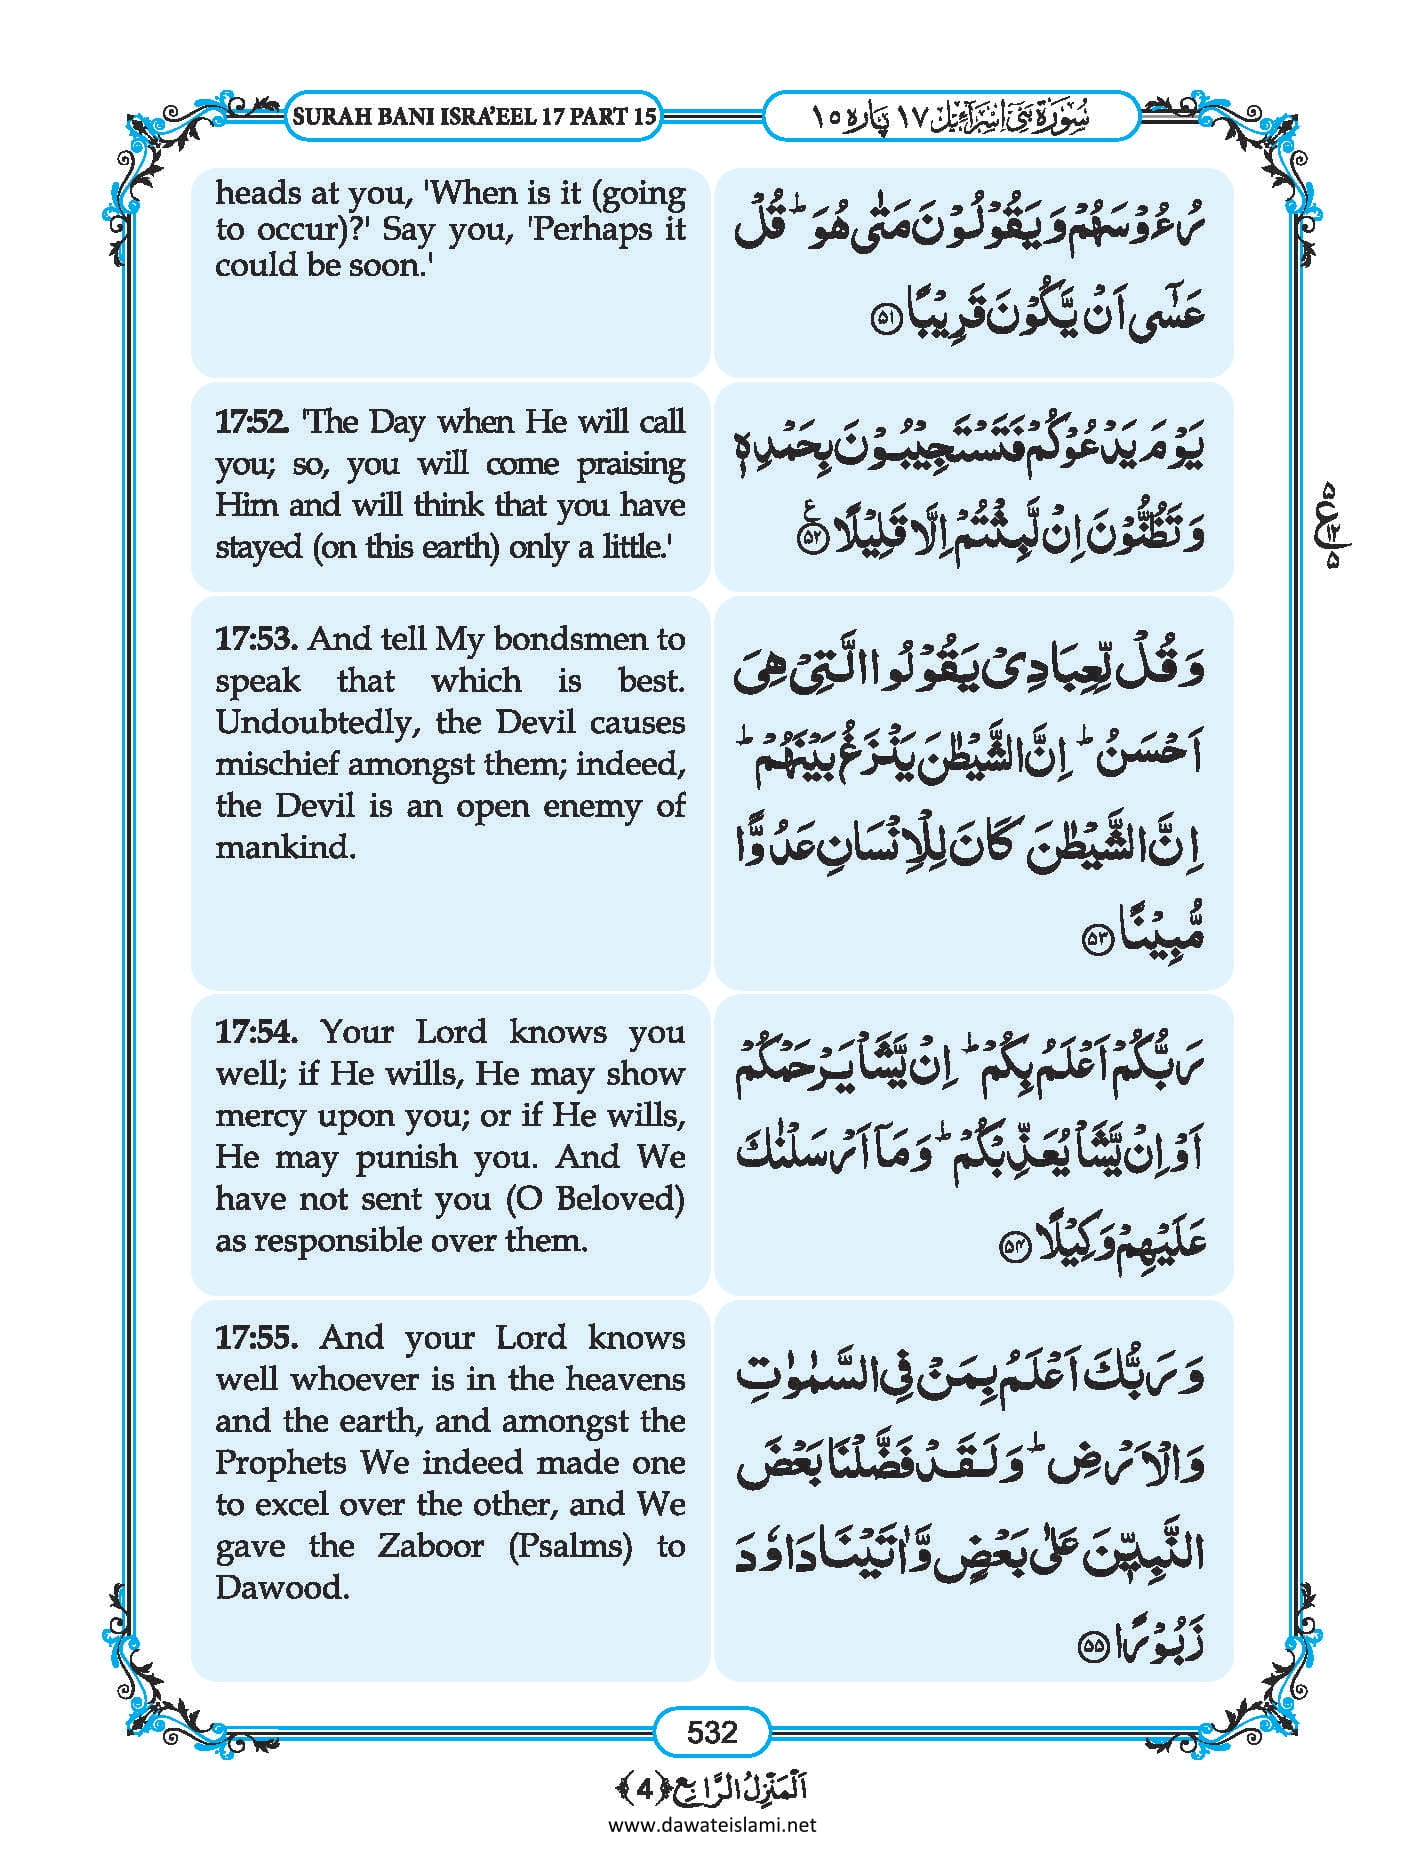 SURAH BANI ISRA'EEL 17 PART 15
سُوْرَةُ بَنِیْۤ اِسْرَآءِیْل ١٧ پاره ١٥
heads at you, 'When is it (going
to occur)?' Say you, 'Perhaps it
could be soon.'
رُءُوْسَهُمْ وَ يَقُوْلُوْنَ مَتٰى هُوَ ؕ قُلْ
عَسٰۤى اَنْ يَّكُوْنَ قَرِيْبًا ۵۱
17:52. 'The Day when He will call
you; so, you will come praising
Him and will think that you have
stayed (on this earth) only a little.'
يَوْمَ يَدْعُوْكُمْ فَتَسْتَجِيْبُوْنَ بِحَمْدِهٖ
وَ تَظُنُّوْنَ اِنْ لَّبِثْتُمْ اِلَّا قَلِيْلًا ۵۲ ع
۵
ع ۱۲
۵
17:53. And tell My bondsmen to
speak that which is best.
Undoubtedly, the Devil causes
mischief amongst them; indeed,
the Devil is an open enemy of
mankind.
وَ قُلْ لِّعِبَادِيْ يَقُوْلُوا الَّتِيْ هِيَ
اَحْسَنُ ؕ اِنَّ الشَّيْطٰنَ يَنْزَغُ بَيْنَهُمْ ؕ
اِنَّ الشَّيْطٰنَ كَانَ لِلْاِنْسَانِ عَدُوًّا
مُّبِيْنًا ۵۳
17:54. Your Lord knows you
well; if He wills, He may show
mercy upon you; or if He wills,
He may punish you. And We
have not sent you (O Beloved)
as responsible over them.
رَبُّكُمْ اَعْلَمُ بِكُمْ ؕ اِنْ يَّشَاْ يَرْحَمْكُمْ
اَوْ اِنْ يَّشَاْ يُعَذِّبْكُمْ ؕ وَ مَاۤ اَرْسَلْنٰكَ
عَلَيْهِمْ وَكِيْلًا ۵۴
17:55. And your Lord knows
well whoever is in the heavens
and the earth, and amongst the
Prophets We indeed made one
to excel over the other, and We
gave the Zaboor (Psalms) to
Dawood.
وَ رَبُّكَ اَعْلَمُ بِمَنْ فِي السَّمٰوٰتِ
وَالْاَرْضِ ؕ وَ لَقَدْ فَضَّلْنَا بَعْضَ
النَّبِيّٖنَ عَلٰى بَعْضٍ وَّ اٰتَيْنَا دَاوٗدَ
زَبُوْرًا ۵۵
532
اَلْمَنْزِلُ الرَّابِع ﴿4﴾
www.dawateislami.net